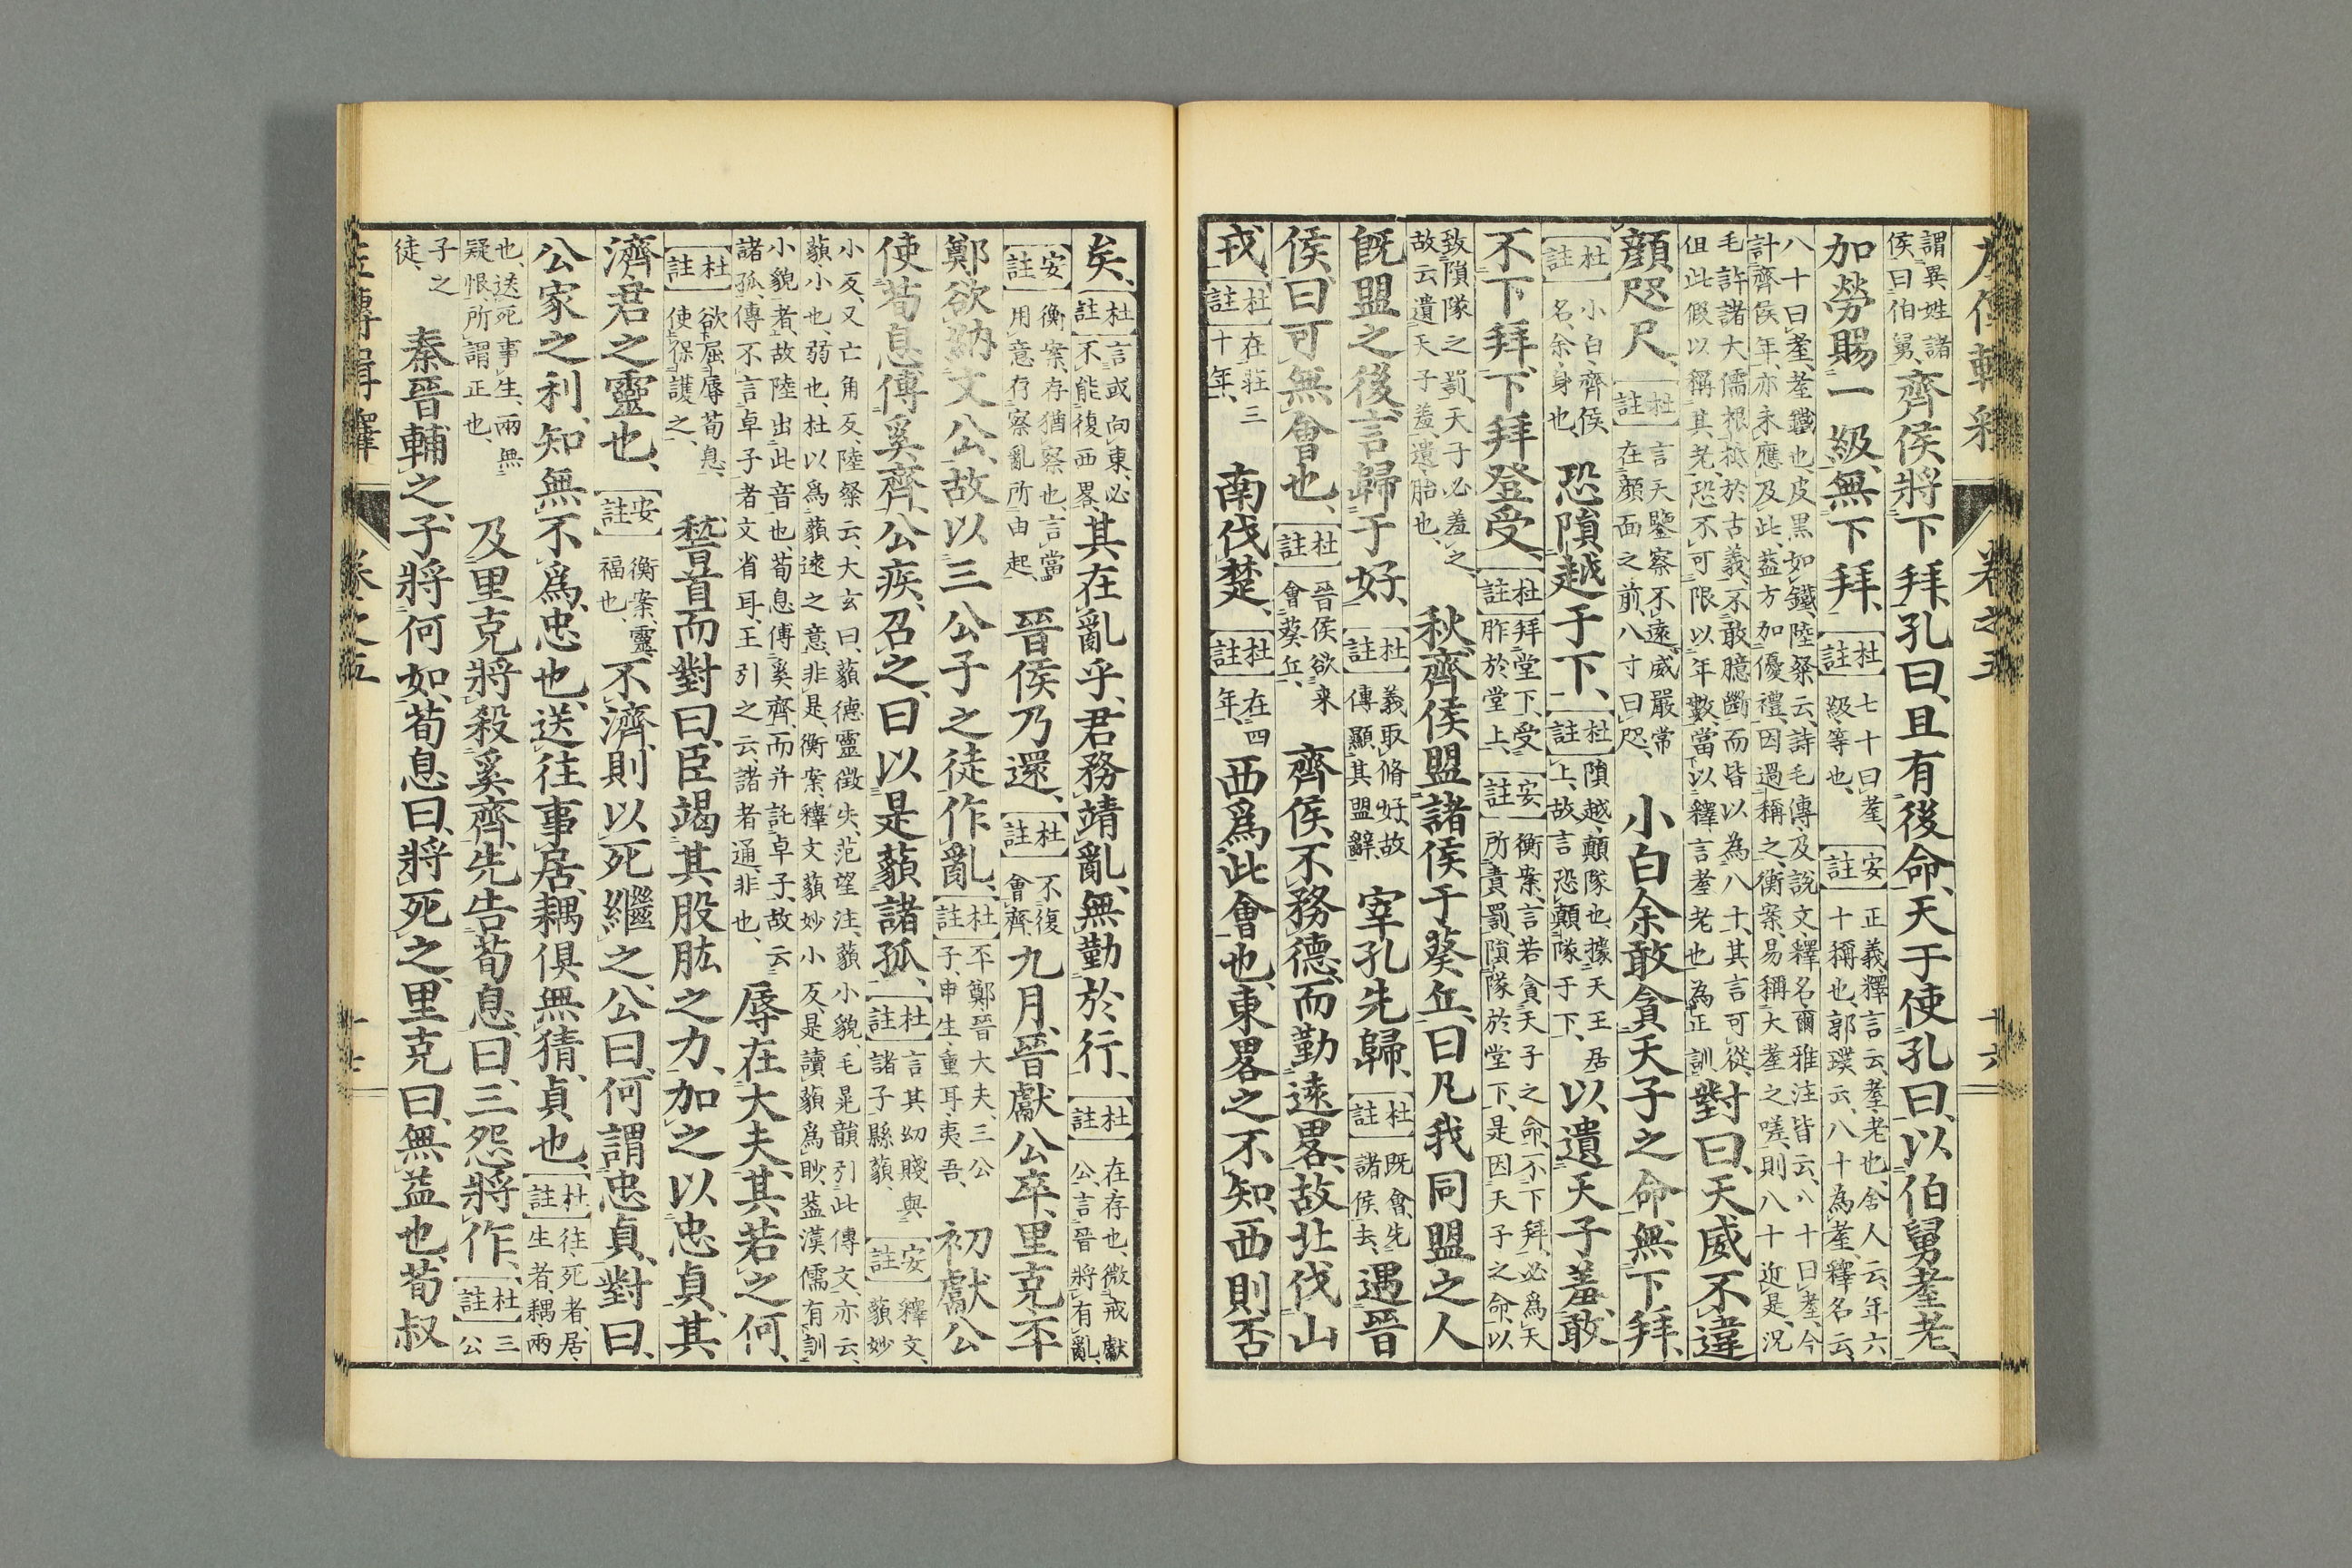 左傳輯釋 卷之五 十六
謂異姓諸侯曰伯舅、齊侯將下拜、孔曰、且有後命、天子使孔曰、以伯舅耋老、
加勞賜一級、無下拜、【杜註】七十曰耋、級、等也、【安註】正義釋言云、耋、老也、舍人云、年六十稱也、郭璞云、八十為耋、釋名云、
八十曰耋、耋鐵也、皮黑如鐵、陸粲云、詩毛傳、及說文、釋名爾雅注皆云、八十曰耋、今計齊侯年、亦未應及此、葢方加優禮、因過稱之、衡案、易稱大耋之嗟、則八十近是、況
毛許諸大儒根柢於古義、不敢臆斷、而皆以為八十、其言可從、但此假以稱其老、恐不可限以年數、當以釋言耋老也為正訓 對曰、天威不違
顏咫尺、【杜註】言天鑒察不遠、威嚴常在顏面之前、八寸曰咫、小白余敢貪天子之命、無下拜、
【杜註】小白、齊侯名、余、身也、恐隕越于下、【杜註】隕越、顛隊也、據天王居上、故言恐顛隊于下、以遺天子羞、敢
不下拜、下拜登受、【杜註】拜堂下、受胙於堂上、【安註】衡案、言若貪天子之命、不下拜、必爲天所責罰、隕隊於堂下、是因天子之命、以
致隕隊之罰、天子必羞之、故云遺天子羞、遺、胎也、秋、齊侯盟諸侯于葵丘、曰凡我同盟之人
既盟之後、言歸于好、【杜註】義取脩好、故傳顯其盟辭、宰孔先歸、【杜註】既會、先諸侯去、遇晉
侯、曰可無會也、【杜註】晉侯欲来會葵丘、齊侯不務德、而勤遠畧、故北伐山
戎、【杜註】在莊三十年、南伐楚、【杜註】在四年、西爲此會也、東畧之不知、西則否
矣、【杜註】言或向東、必不能復西畧、其在亂乎、君務靖亂、無勤於行、【杜註】在存也、微戒獻公、言晉將有亂、
【安註】衡案、存猶察也、言當用意存察亂所由起、晉侯乃還、【杜註】不復會齊、九月、晉獻公卒、里克、丕
鄭、欲納文公、故以三公子之徒作亂、【杜註】丕鄭、晉大夫、三公子、申生、重耳、夷吾、初獻公
使荀息傅奚齊、公疾、召之、曰以是藐諸孤、【杜註】言其幼賤與諸子縣藐、【安註】釋文、藐妙
小反、又亡角反、陸粲云、大玄曰、藐德靈徴失、范望注、藐小貌、毛晃韻引此傳文、亦云、藐小也、弱也、杜以爲藐遠之意、非是、衡案、釋文藐妙小反、是讀藐爲眇、葢漢儒有訓
小貌者、故陸出此音也、荀息傅奚齊、而并託卓子、故云諸孤、傳不言卓子者文省耳、王引之云、諸者通、非也、辱在大夫、其若之何、
【杜註】欲屈辱荀息、使保護之、稽首而對曰、臣竭其股肱之力、加之以忠貞、其
濟、君之靈也、【安註】衡案、靈、福也、不濟、則以死繼之、公曰、何謂忠貞、對曰、
公家之利、知無不爲、忠也、送往事居、耦俱無猜、貞也、【杜註】往、死者、居、生者、耦、兩
也、送死事生、兩無疑恨、所謂正也、及里克將殺奚齊、先告荀息、曰、三怨將作、【杜註】三公
子之徒、秦晉輔之、子將何如、荀息曰、將死之、里克曰、無益也、荀叔
左傳輯釋 卷之五